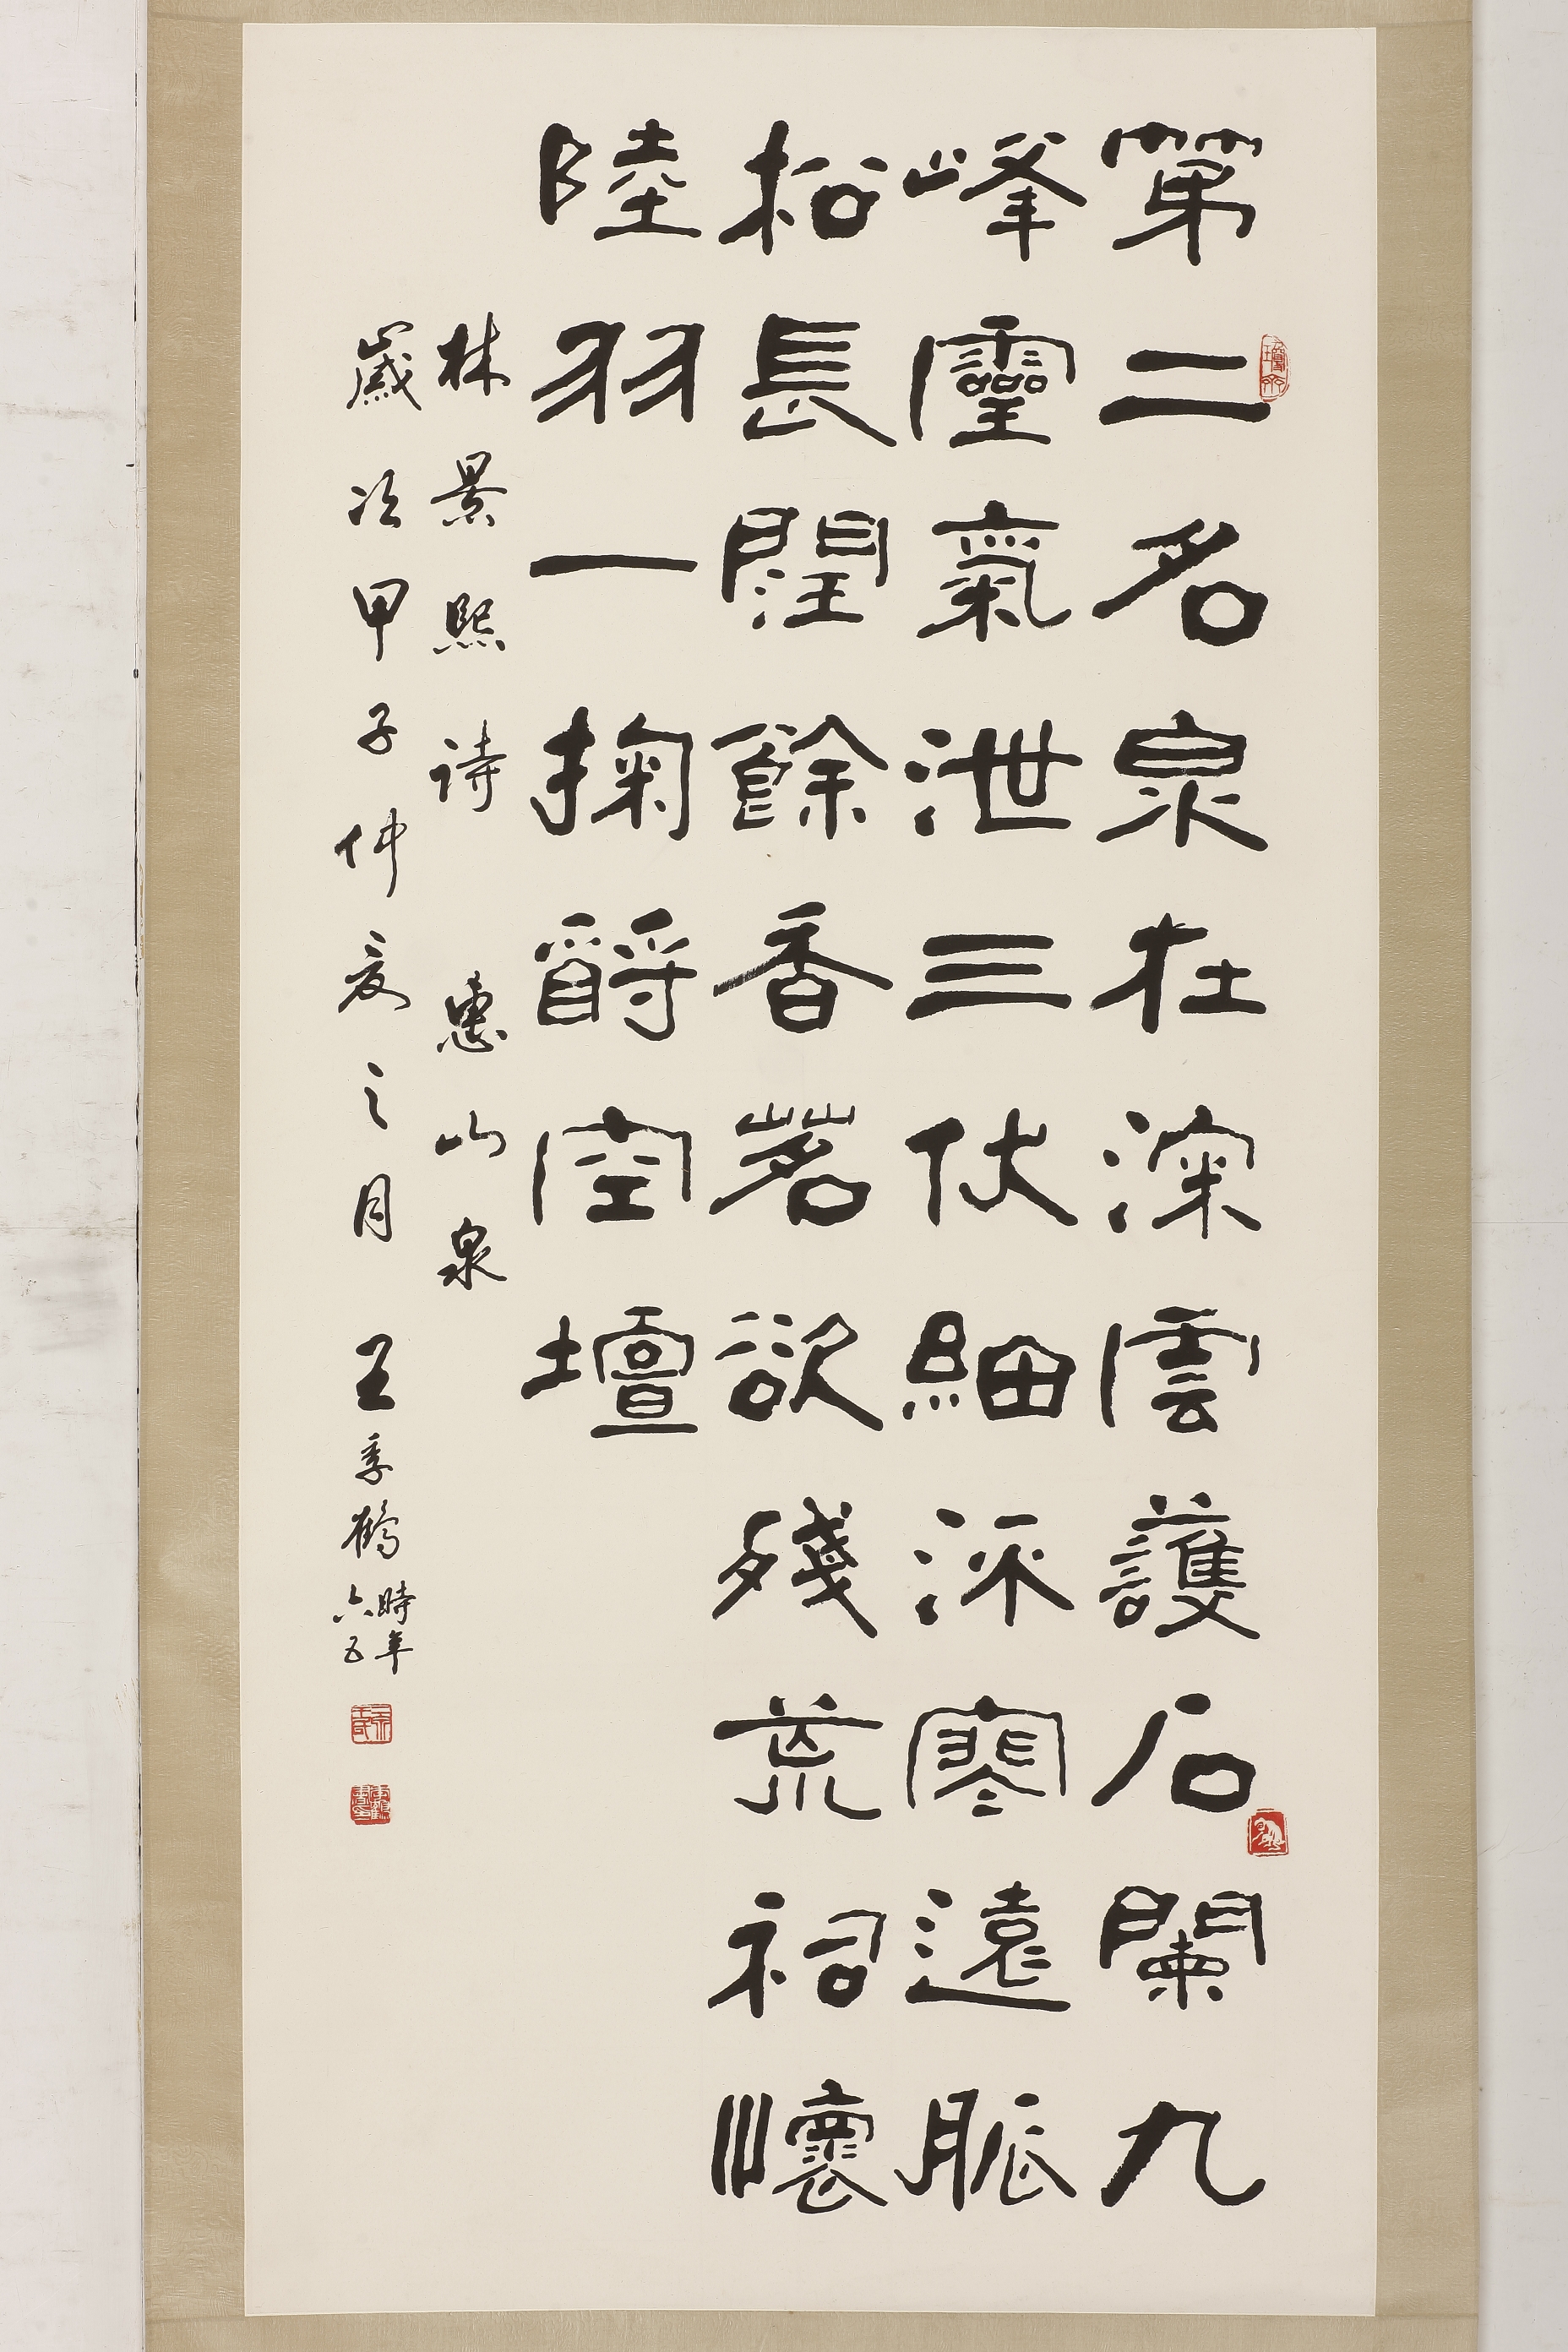 第二名泉在深雲護石闌九
峰靈氣泄三伏細寒遠脈
松長潤餘香茗欲殘荒祠懷
陸羽一掬酹空壇
林景熙詩 惠山泉
歲次甲子仲夏之月 王季鶴 時年六五